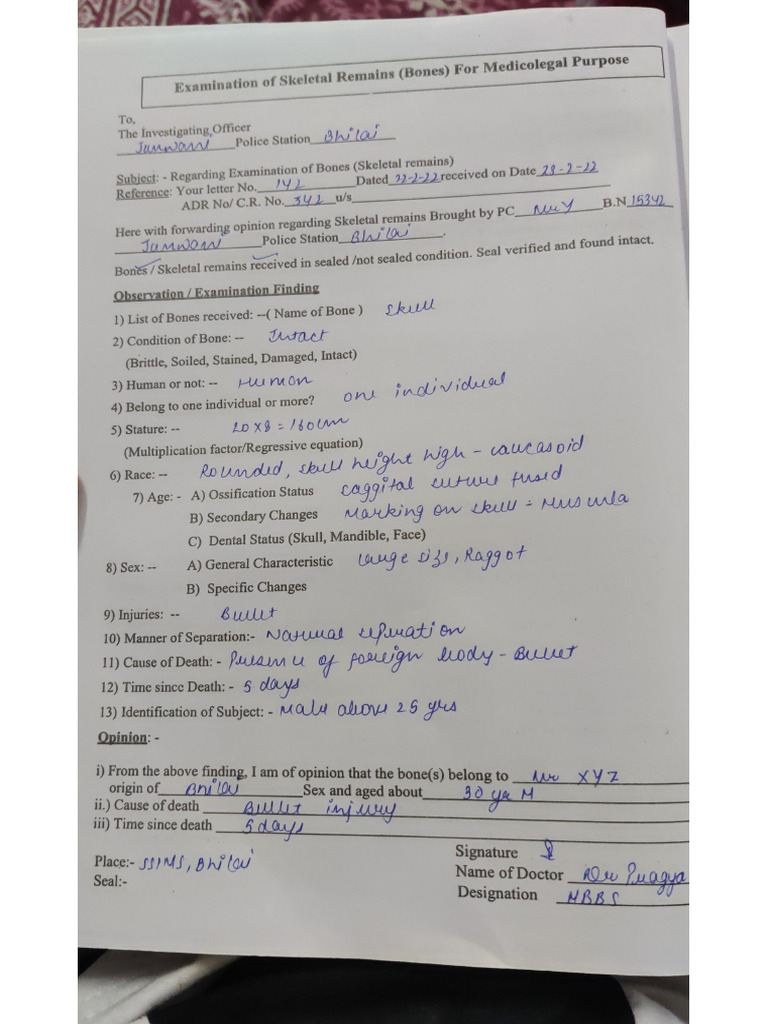 Examination of Skeletal Remains (Bones) For Medicolegal Purpose
To,
The Investigating Officer
Junwani Police Station Bhilai
Subject: - Regarding Examination of Bones (Skeletal remains)
Reference: Your letter No. 142 Dated 22-2-22 received on Date 23-2-22
ADR No/ C.R. No. 342 u/s
Here with forwarding opinion regarding Skeletal remains Brought by PC Mr Y B.N 15342
Junwani Police Station Bhilai.
Bones / Skeletal remains received in sealed /not sealed condition. Seal verified and found intact.
Observation / Examination Finding
1) List of Bones received: --( Name of Bone ) Skull
2) Condition of Bone: -- Intact
(Brittle, Soiled, Stained, Damaged, Intact)
3) Human or not: -- Human
4) Belong to one individual or more? one individual
5) Stature: -- 20 x 8 = 160 cm
(Multiplication factor/Regressive equation)
6) Race: -- Rounded, skull height high - caucasoid
7) Age: - A) Ossification Status saggital suture fused
B) Secondary Changes Marking on skull = Muscular
C) Dental Status (Skull, Mandible, Face)
8) Sex: -- A) General Characteristic large size, Raggot
B) Specific Changes
9) Injuries: -- Bullet
10) Manner of Separation:- Natural seperation
11) Cause of Death: - Presence of foreign body - Bullet
12) Time since Death: - 5 days
13) Identification of Subject: - Male above 25 yrs
Opinion: -
i) From the above finding, I am of opinion that the bone(s) belong to Mr XYZ
origin of Bhilai Sex and aged about 30 yr M
ii.) Cause of death Bullet injury
iii) Time since death 5 days
Signature
Place:- SSIMS, Bhilai
Name of Doctor Dr Pragya
Seal:-
Designation MBBS